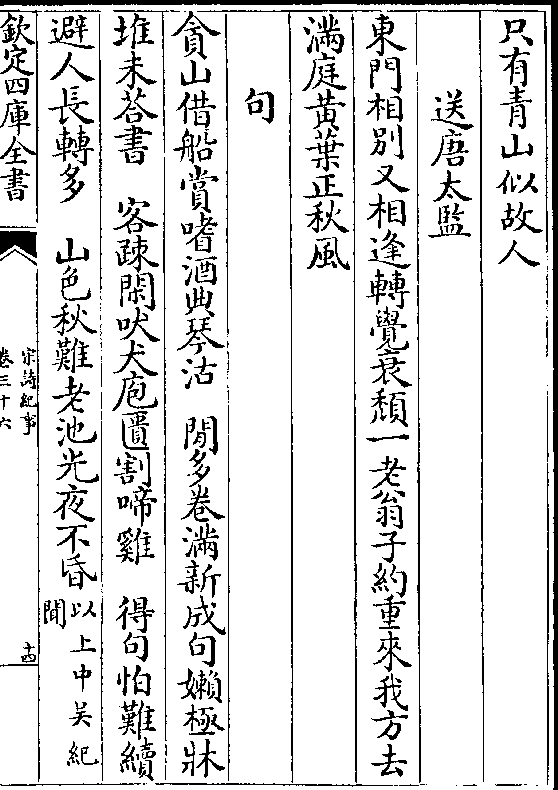 只有青山似故人
送唐太監
東門相别又相逢轉覺衰頽一老翁子約重來我方去
滿庭黄葉正秋風
句
貪山借船賞嗜酒典琴沽　閒多卷滿新成句嬾極牀
堆未荅書　客踈閑吠犬庖匱割啼雞　得句怕難續
避人長轉多　山色秋難老池光夜不昏以上中吳紀聞
欽定四庫全書
宋詩紀事
卷三十六
十四